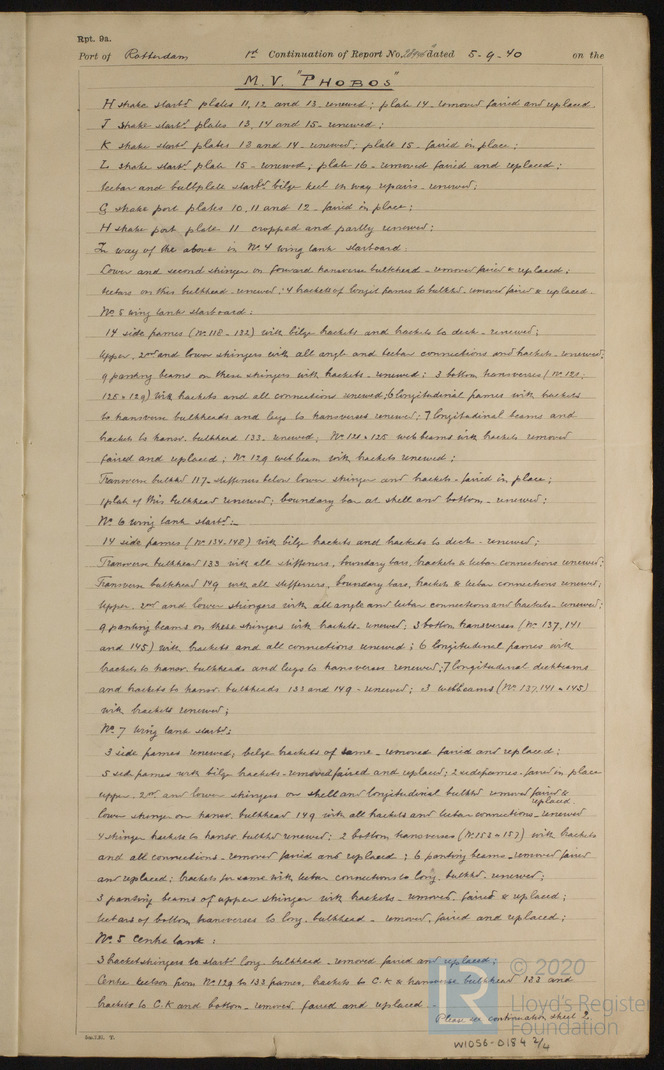 Rpt. 9a.
Port of Rotterdam 1st Continuation of Report No. dated 5-9-40 on the
M.V. "PHOBOS"
H strake starbd plates 11, 12 and 13 renewed; plate 14 - removed faired and replaced.
J strake starbd plates 13, 14 and 15 - renewed;
K strake starbd plates 13 and 14 - renewed; plate 15 - faired in place;
L strake starbd plate 15 - renewed; plate 16 - removed faired and replaced;
teebar and bulbplate starbd bilge keel in way repairs - renewed;
G strake port plates 10, 11 and 12 - faired in place;
H strake port plate 11 cropped and partly renewed;
In way of the above in No. 4 wing tank starboard:
Lower and second stringer on forward transverse bulkhead - removed faired & replaced;
teebars on this bulkhead - renewed; 4 brackets of longl frames to bulkhd - removed faired & replaced.
No. 5 wing tank starboard:
14 side frames (No. 118 - 132) with bilge brackets and brackets to deck - renewed;
upper, 2nd and lower stringers with all angle and teebar connections and brackets - renewed;
9 panting beams on these stringers with brackets - renewed; 3 bottom transverses (No. 121,
125 & 129) with brackets and all connections renewed; 6 longitudinal frames with brackets
to transverse bulkheads and lugs to transverses renewed; 7 longitudinal beams and
brackets to transv. bulkhead 133 - renewed; No. 121 & 125 web beams with brackets removed
faired and replaced; No. 129 web beam with brackets renewed;
Transverse bulkhd 117 - stiffeners below lower stringer and brackets - faired in place;
1 plate of this bulkhead renewed; boundary bar at shell and bottom - renewed;
No. 6 wing tank starbd:-
14 side frames (No. 134-148) with bilge brackets and brackets to deck - renewed;
Transverse bulkhead 133 with all stiffeners, boundary bars, brackets & teebar connections renewed;
Transverse bulkhead 149 with all stiffeners, boundary bars, brackets & teebar connections renewed;
Upper, 2nd and lower stringers with all angle and teebar connections and brackets - renewed;
9 panting beams on these stringers with brackets - renewed; 3 bottom transverses (No. 137, 141
and 145) with brackets and all connections renewed; 6 longitudinal frames with
brackets to transv. bulkheads and lugs to transverses renewed; 7 longitudinal deckbeams
and brackets to transv. bulkheads 133 and 149 - renewed; 3 webbeams (No. 137, 141 & 145)
with brackets renewed;
No. 7 wing tank starbd:
3 side frames renewed; bilge brackets of same - removed faired and replaced;
5 side frames with bilge brackets - removed faired and replaced; 2 sideframes - faired in place
upper, 2nd and lower stringers on shell and longitudinal bulkhd removed faired &
replaced
lower stringer on transv. bulkhead 149 with all brackets and teebar connections - renewed
4 stringer brackets to transv bulkhd renewed; 2 bottom transverses (No. 153 & 157) with brackets
and all connections - removed faired and replaced; 6 panting beams - removed faired
and replaced; brackets for same with teebar connections to long. bulkhd. renewed;
3 panting beams of upper stringer with brackets - removed, faired & replaced;
teebars of bottom transverses to long. bulkhead - removed, faired and replaced;
No. 5 Centre tank:
3 bracket stringers to starbd long. bulkhead - removed faired and replaced;
Centre keelson from No. 129 to 133 frames, brackets to C.K & transverse bulkhead 133 and
brackets to C.K and bottom - removed, faired and replaced.
Please see continuation sheet 2.
© 2020
LR
Lloyd's Register
Foundation
W1056-0184 2/4